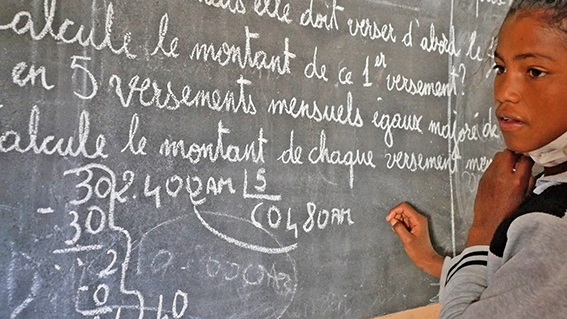 elle doit verser d'abord le
alcule le montant de ce 1er versement?
en 5 versements mensuels égaux majoré de
alcule le montant de chaque versement men
302.400AM 5
- 30 60480AM
30
- 2
0
40